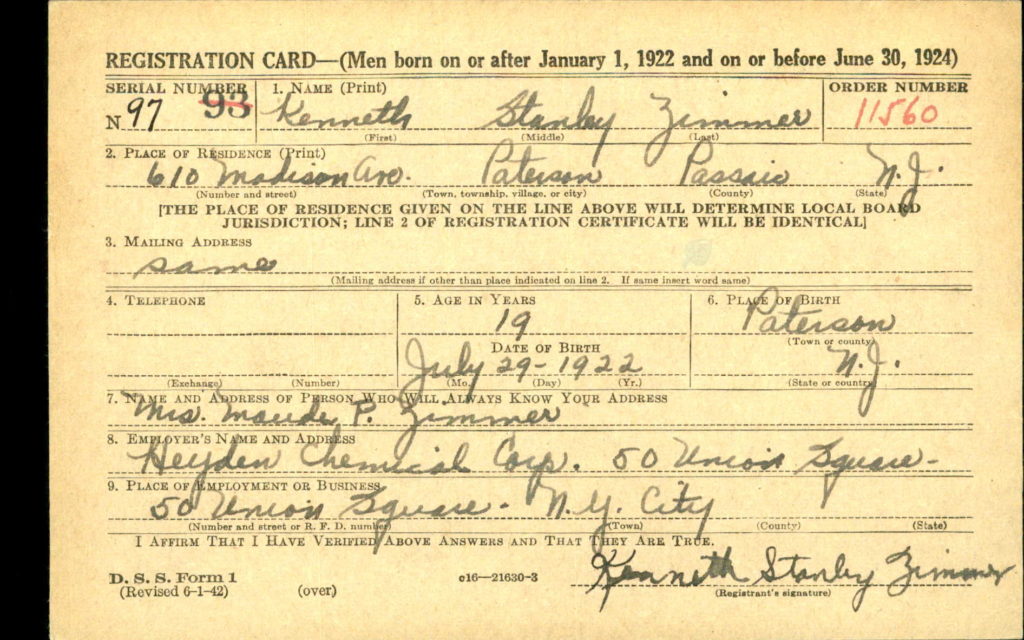 REGISTRATION CARD—(Men born on or after January 1, 1922 and on or before June 30, 1924)
SERIAL NUMBER
1. NAME (Print)
ORDER NUMBER
N 97 93
Kenneth Stanley Zimmer
11560
(First) (Middle) (Last)
2. PLACE OF RESIDENCE (Print)
610 Madison Ave. Paterson Passaic N.J.
(Number and street) (Town, township, village, or city) (County) (State)
[THE PLACE OF RESIDENCE GIVEN ON THE LINE ABOVE WILL DETERMINE LOCAL BOARD
JURISDICTION; LINE 2 OF REGISTRATION CERTIFICATE WILL BE IDENTICAL]
3. MAILING ADDRESS
same
(Mailing address if other than place indicated on line 2. If same insert word same)
4. TELEPHONE
5. AGE IN YEARS
6. PLACE OF BIRTH
19
Paterson
(Town or county)
DATE OF BIRTH
July 29-1922
N.J.
(Exchange) (Number)
(Mo.) (Day) (Yr.)
(State or country)
7. NAME AND ADDRESS OF PERSON WHO WILL ALWAYS KNOW YOUR ADDRESS
Mrs. Maude P. Zimmer
8. EMPLOYER'S NAME AND ADDRESS
Heyden Chemical Corp. 50 Union Square-
9. PLACE OF EMPLOYMENT OR BUSINESS
50 Union Square- N.Y. City
(Number and street or R. F. D. number) (Town) (County) (State)
I AFFIRM THAT I HAVE VERIFIED ABOVE ANSWERS AND THAT THEY ARE TRUE.
D. S. S. Form 1
(Revised 6-1-42) (over)
c16—21630-3
Kenneth Stanley Zimmer
(Registrant's signature)